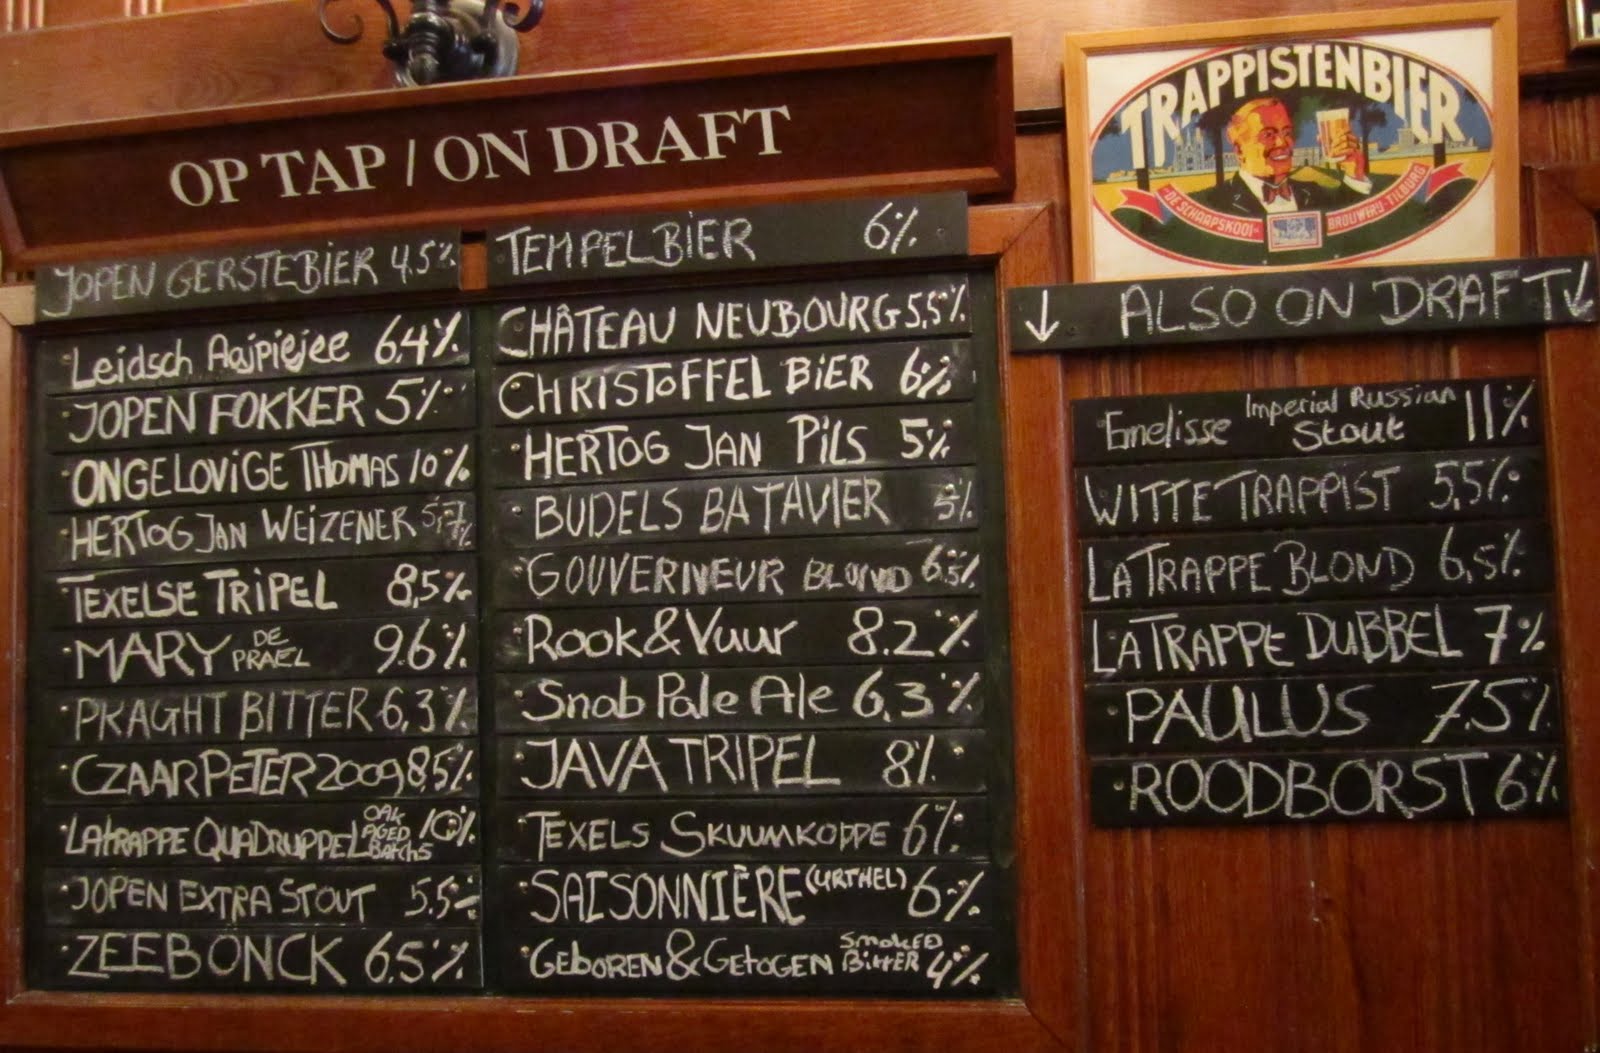 OP TAP / ON DRAFT
JOPEN GERSTEBIER 4.5%
Leidsch Aajpiejee 6,4%
JOPEN FOKKER 5%
ONGELOVIGE THOMAS 10%
HERTOG JAN WEIZENER 5,7%
TEXELSE TRIPEL 8,5%
MARY DE PRAEL 9.6%
PKAGHT BITTER 6,3%
CZAAR PETER 2009 8,5%
LATRAPPE QUADRUPPEL OAK AGED BATCH5 10%
JOPEN EXTRA STOUT 5.5%
ZEEBONCK 6.5%
TEMPELBIER 6%
CHÂTEAU NEUBOURG 5,5%
CHRISTOFFEL BIER 6%
HERTOG JAN PILS 5%
BUDELS BATAVIER 5%
GOUVERNEUR BLOND 6,5%
Rook & Vuur 8.2%
Snab Pale Ale 6,3%
JAVA TRIPEL 8%
TEXELS SKUUMKOPPE 6%
SAISONNIÈRE (URTHEL) 6%
GEBOREN & GETOGEN SMOKED BITTER 4%
TRAPPISTENBIER
"DE SCHAAPSKOOI"
BROUWERIJ-TILBURG
↓ ALSO ON DRAFT ↓
Emelisse Imperial Russian Stout 11%
WITTE TRAPPIST 5,5%
LA TRAPPE BLOND 6,5%
LA TRAPPE DUBBEL 7%
PAULUS 7.5%
ROODBORST 6%